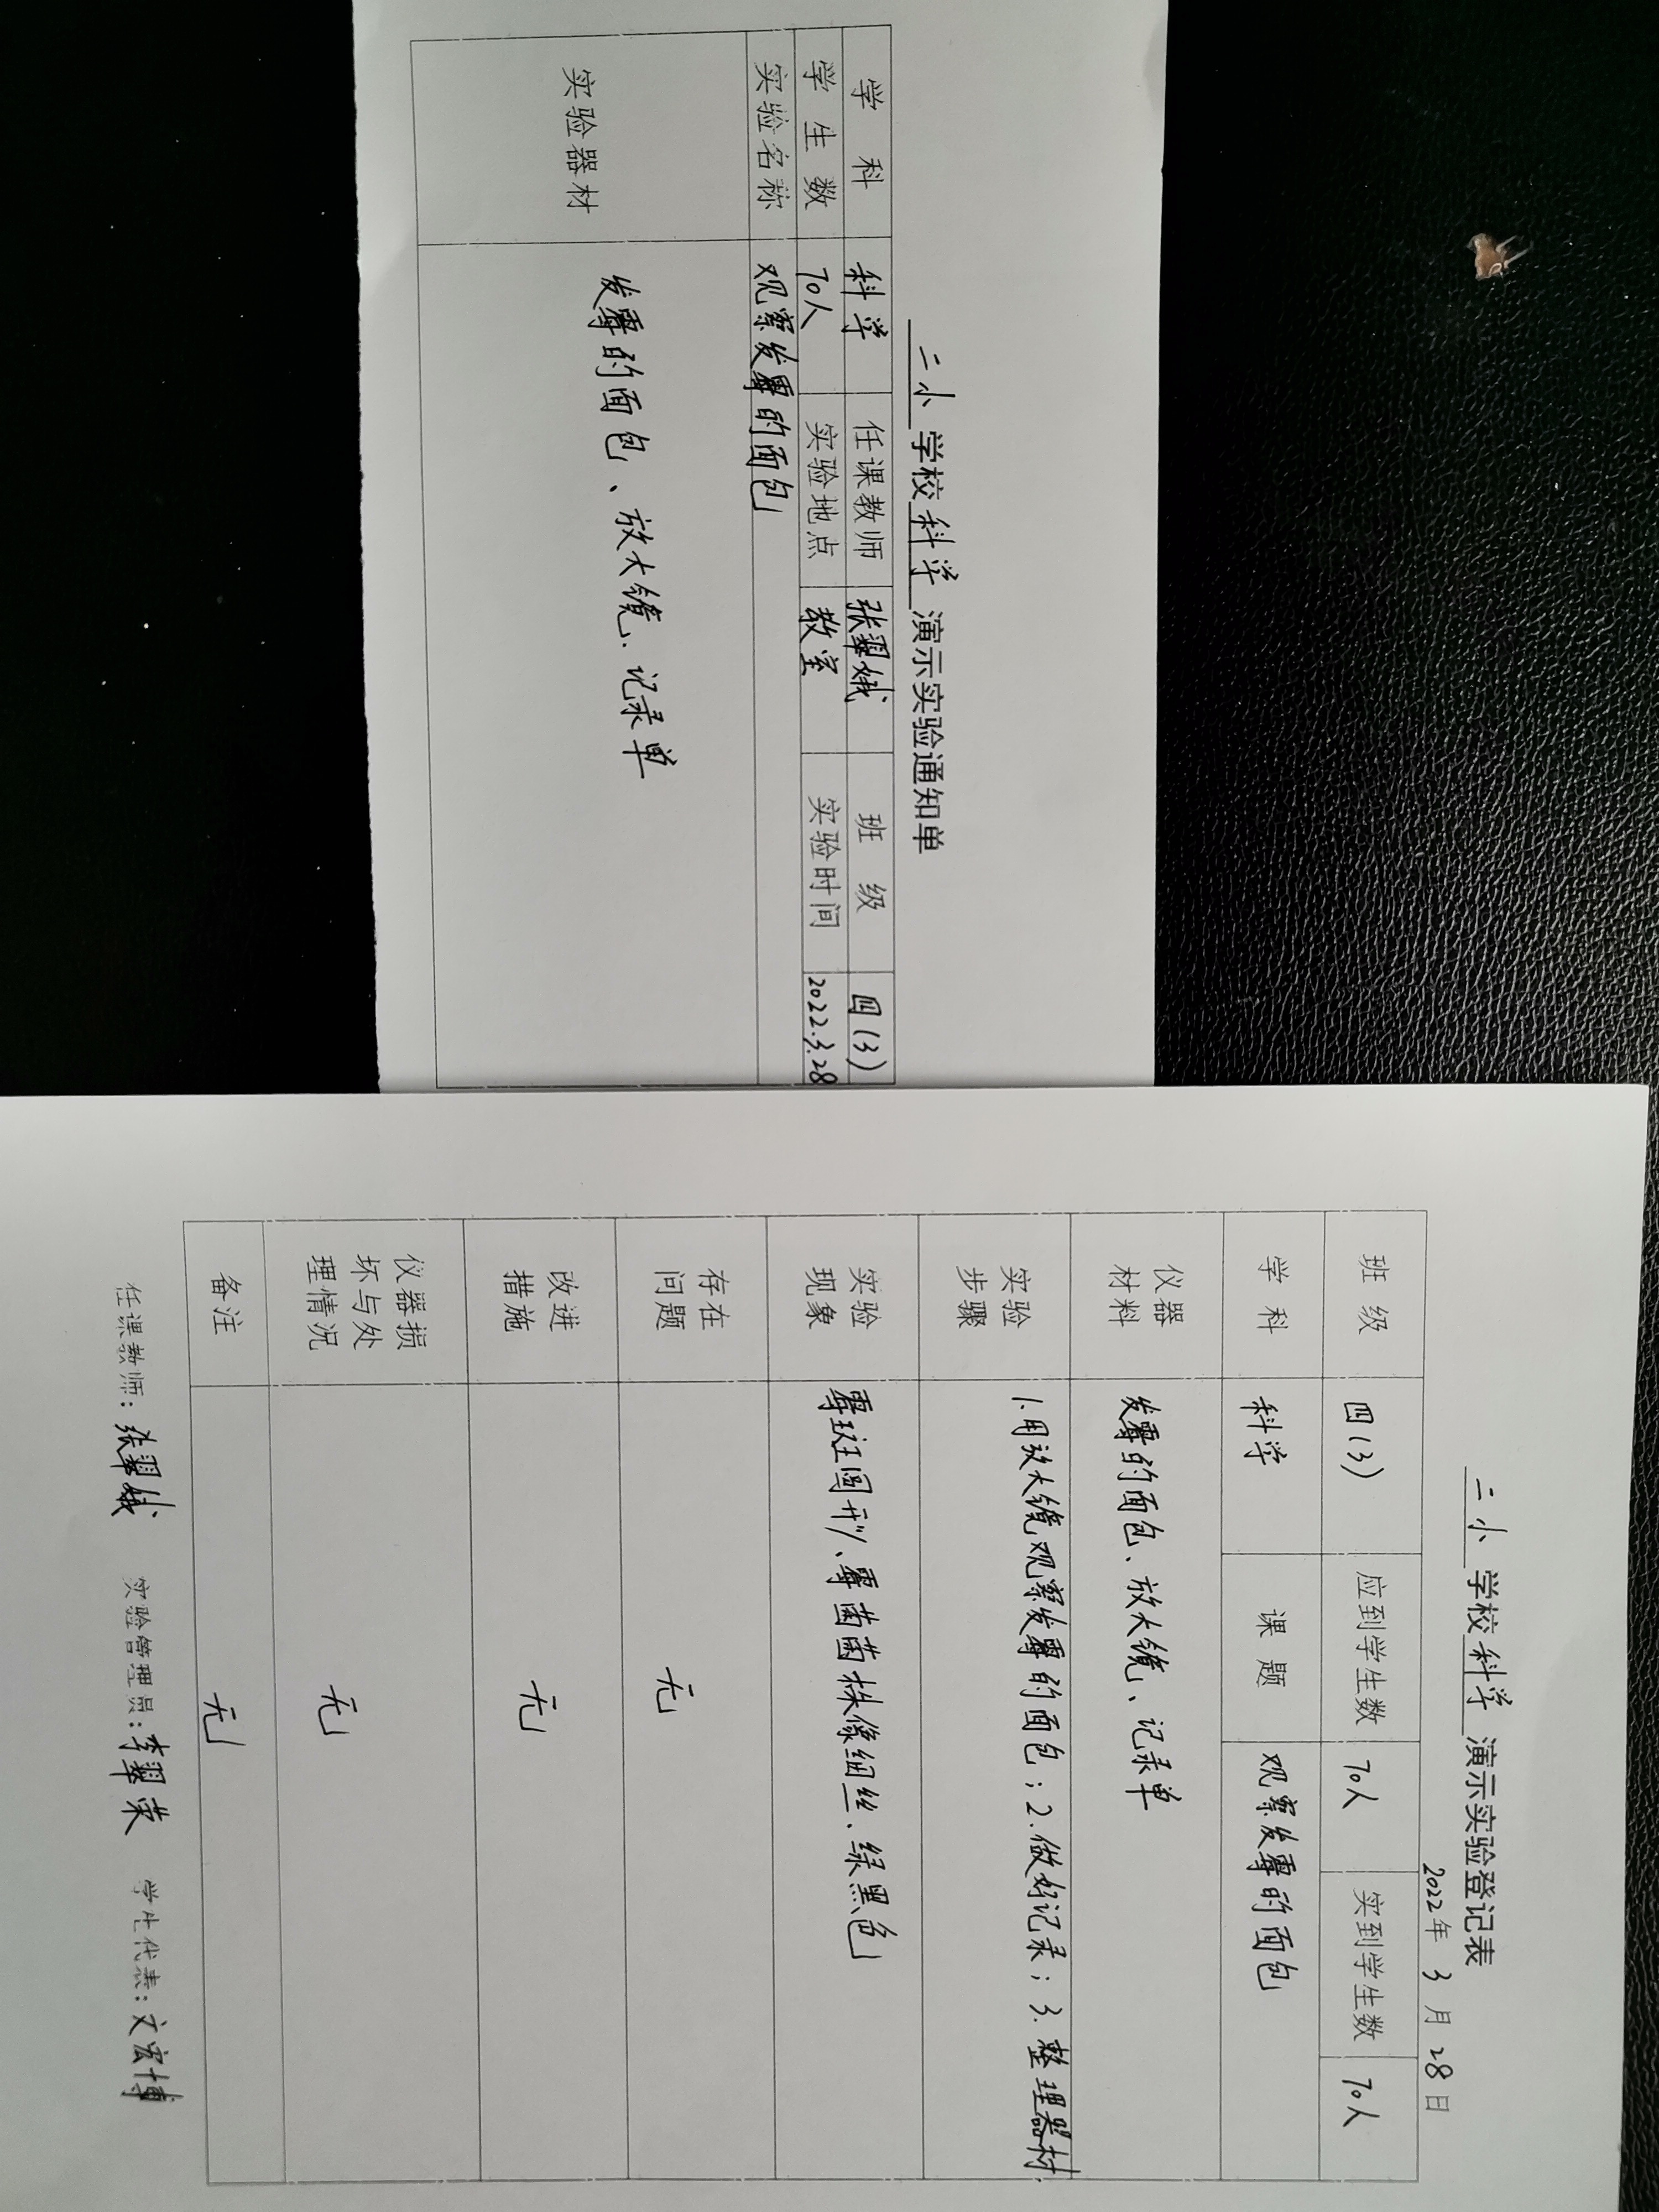 二小 学校 科学 演示实验通知单
学 科 科学 任课教师 张翠娥 班 级 四(3)
学 生 数 70人 实验地点 教室 实验时间 2022.3.28
实验名称 观察发霉的面包
实验器材 发霉的面包、放大镜、记录单
二小 学校 科学 演示实验登记表
2022年 3 月 28 日
班 级 四(3) 应到学生数 70人 实到学生数 70人
学 科 科学 课 题 观察发霉的面包
仪器
材料
发霉的面包、放大镜、记录单
实验
步骤
1.用放大镜观察发霉的面包;2.做好记录;3.整理器材
实验
现象
霉斑圆形、霉菌菌株像细丝、绿黑色
存在
问题
无
改进
措施
无
仪器损
坏与处
理情况
无
备注 无
任课教师:张翠娥 实验管理员:李翠荣 学生代表:文宏博